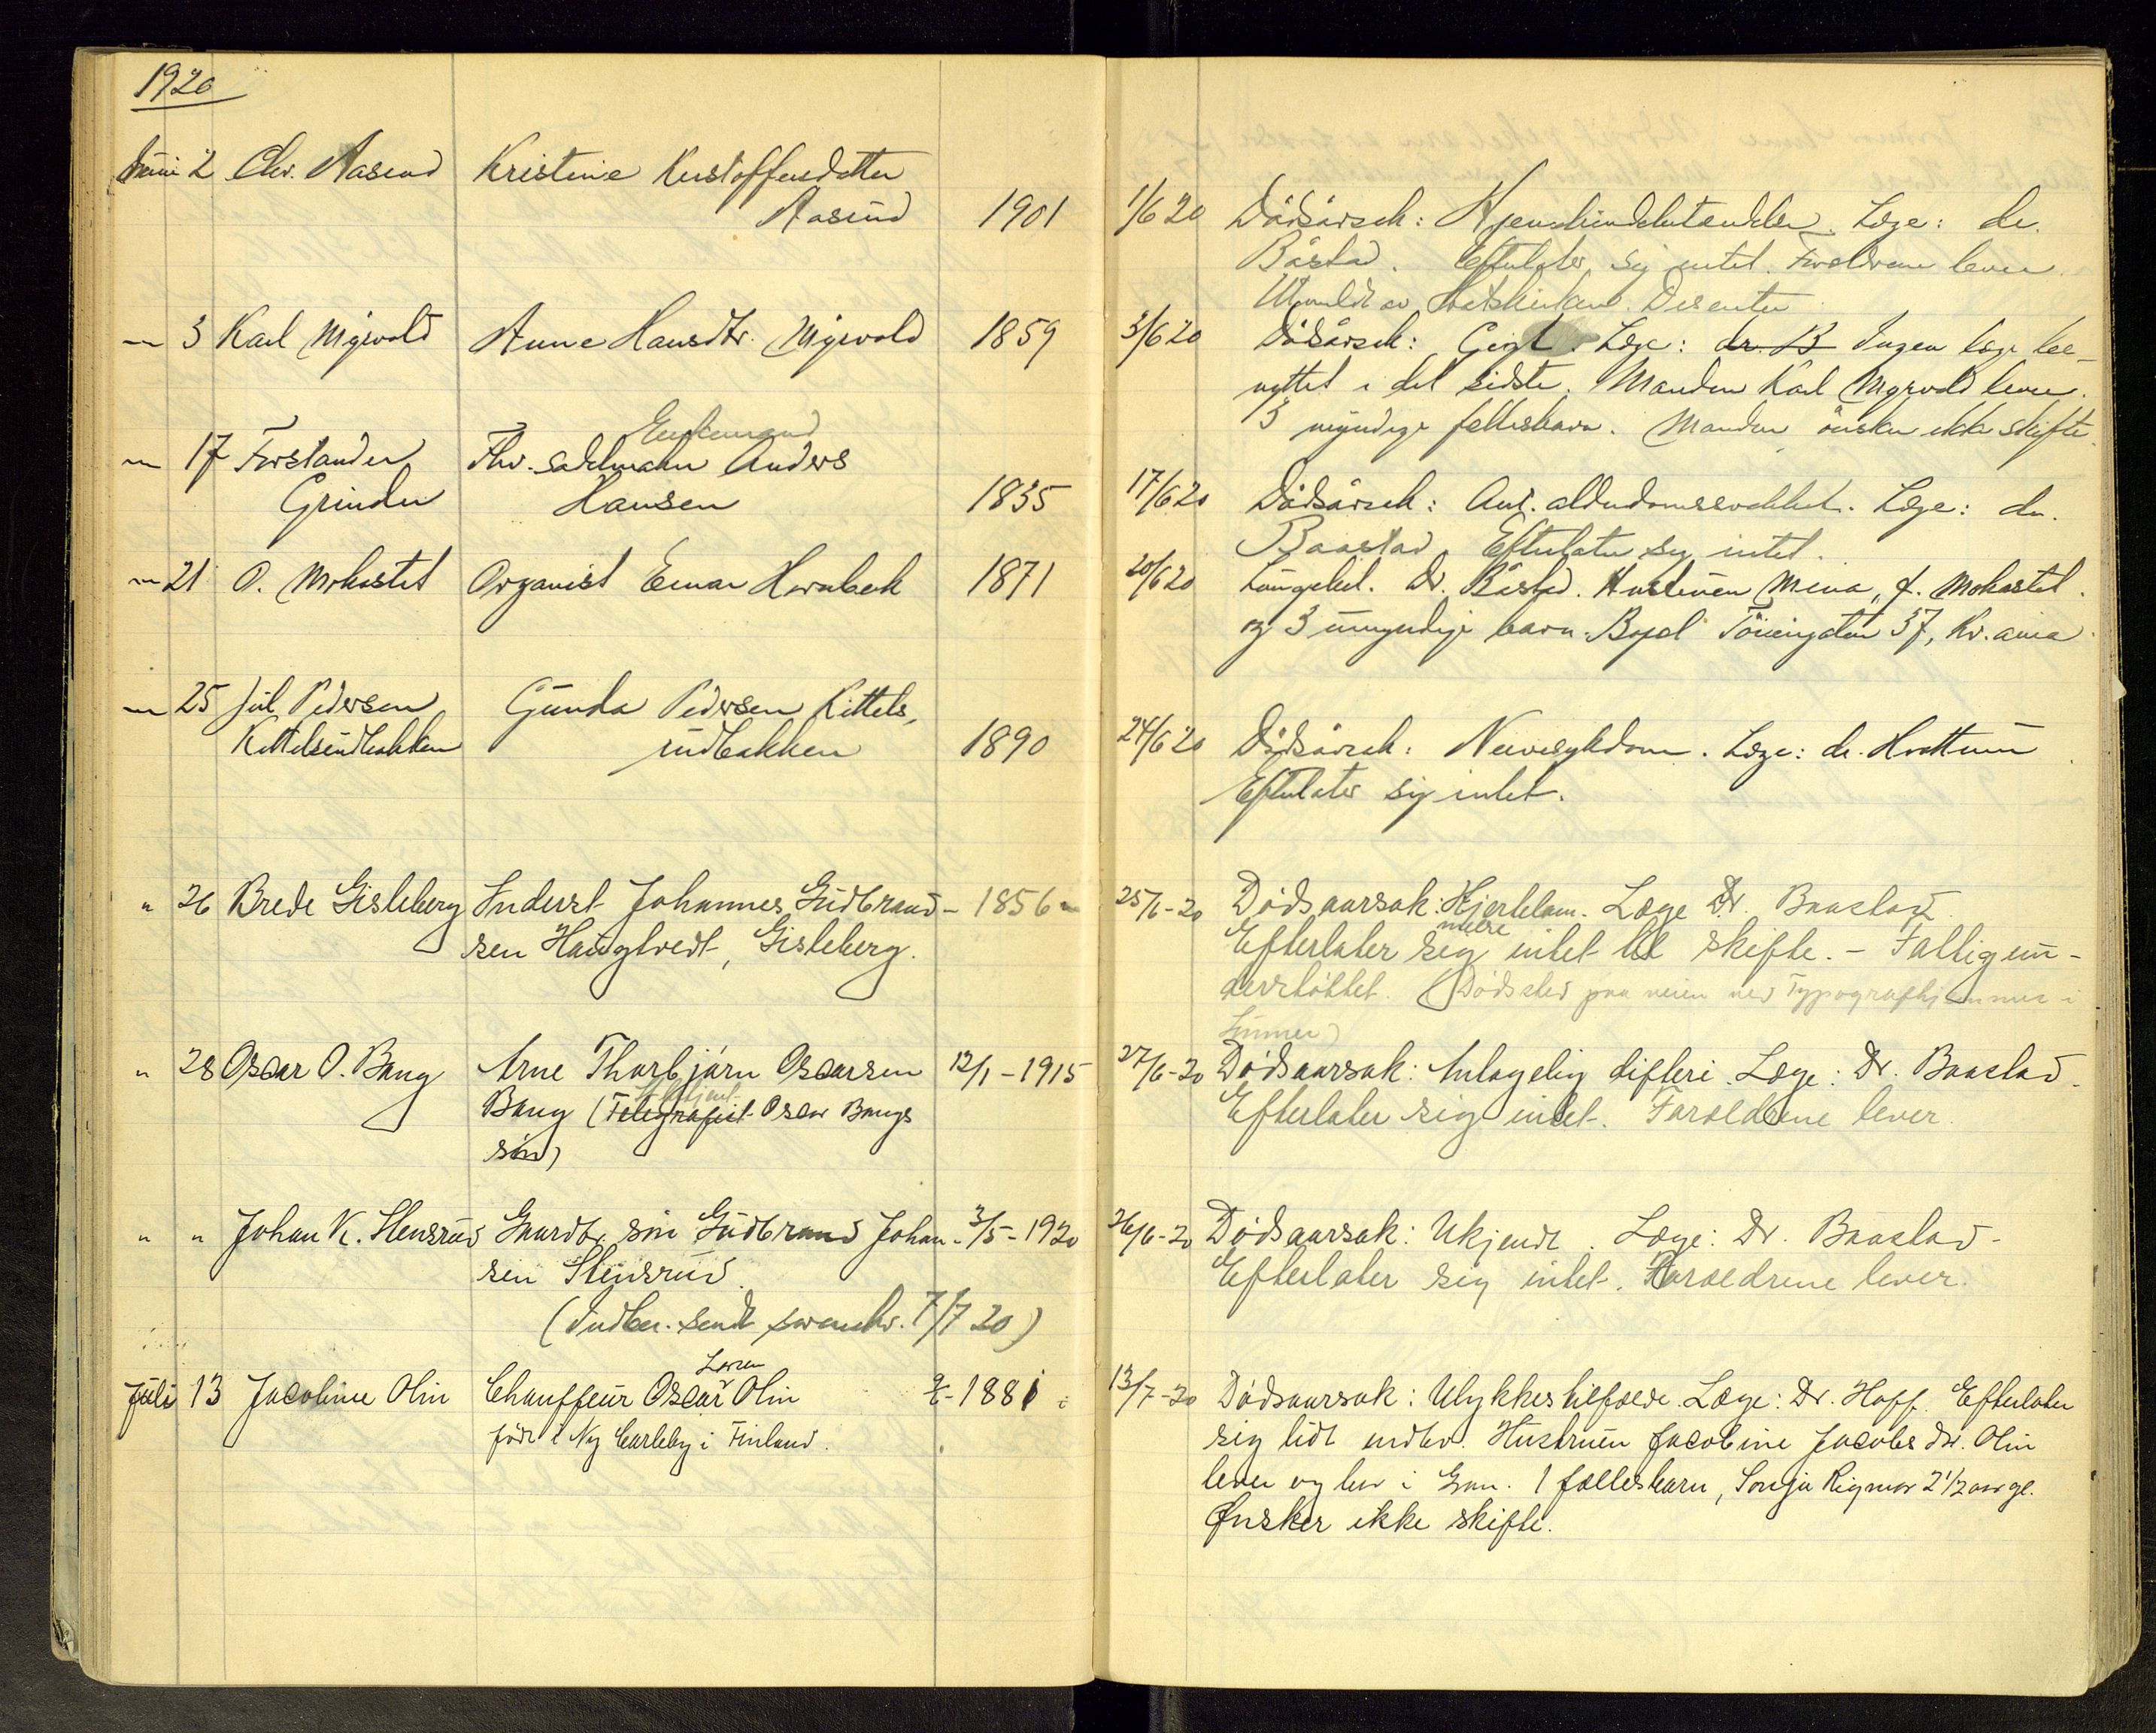 1920
Juni 2 Chr. Aasend Kristine Kristoffersdatter
Aasend 1901
1/6 20 Dödsårsak: Hjernehindebetændelse. Læge: dr.
Båstad. Efterlater sig intet. Forældrene lever.
Utmeldt av Statskirken. Disenter
— 3 Karl Myrvold Anne Hansdtr. Myrvold 1859
3/6 20 Dödsårsak: Gigt. Læge: dr. B Ingen læge be-
nyttet i det sidste. Manden Karl Myrvold lever.
3 myndige fellesbarn. Manden önsker ikke skifte.
— 17 Forstander Enkemand
Grinder Fhv. sadelmaker Anders
Hansen 1835
17/6 20 Dödsårsak: Ant. alderdomssvakhet. Læge: dr.
Baastad. Efterlater sig intet.
— 21 O. Mohastet Organist Einar Hornbeck 1871
20/6 20 Lungebet. Dr. Båstad. Hustruen Mina, f. Mohastet
og 3 umyndige barn. Bopel Töiengaten 37, Kr.ania.
— 25 Jul. Pedersen Gunda Pedersen Kittels,
Kittelsrudbakken rudbakken 1890
24/6 20 Dödsårsak: Nervesykdom. Læge: dr. Hvattum
Efterlater sig intet.
" 26 Brede Gisleberg Inderst Johannes Gudbrand- 1856
sen Haugtvedt, Gisleberg.
25/6-20 Dödsaarsak: Hjertelam. Læge Dr. Baastad
Efterlater sig intet til skifte. - Fattigun-
derstöttet. (Dödsted paa veien ved Typografhjemmet i
Lunner)
" 28 Oscar O. Bang Arne Thorbjörn Oscarsen 12/1-1915
Bang (Telegrafist Oscar Bangs
sön)
27/6-20 Dödsaarsak: Antagelig difteri. Læge: Dr. Baastad.
Efterlater sig intet. Foroeldrene lever.
" " Johan K. Stensrud Gaardbr. sön Gudbrand Johan- 3/5-1920
sen Stensrud.
(Indber. sendt sorenskr. 7/7 20)
26/6-20 Dödsaarsak: Ukjendt. Læge: Dr. Baastad-
Efterlater sig intet. Foroeldrene lever.
Juli 13 Jacobine Olin Chauffeur Oscar Olin 1881
födt i Ny Carleby i Finland.
13/7-20 Dödsaarsak: Ulykkestilfoelde. Læge: Dr. Hoff. Efterlater
sig lidt indbo. Hustruen Jacobine Jacobs dtr. Olin
lever og bor i Gran. 1 foellesbarn, Sonja Rigmor 2 1/2 aar gl.
Önsker ikke skifte.